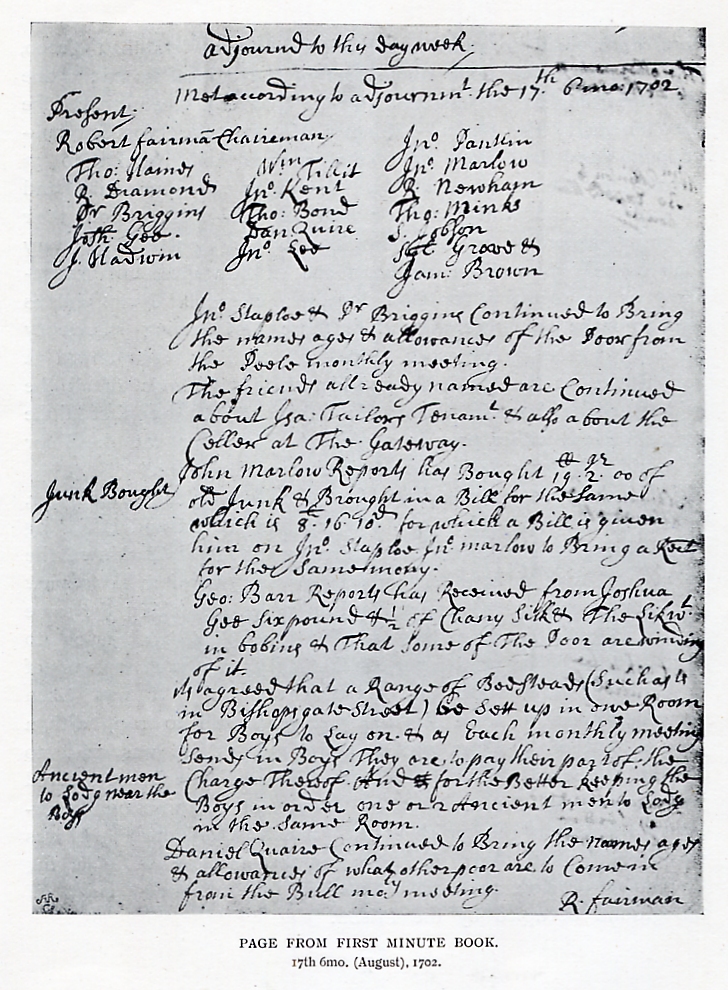 adjournd to this day week.
Met according to adjournmt. the 17th 6 mo: 1702
Present.
Robert fairman Chaireman
Tho: Haines
R. Diamond
Dr Briggins
Josh: Gee.
J. Hadwin
Wm Tillit
Jno. Kent
Tho: Bond
Dan Quire
Jno. Lee
Jno. Pantlin
Jno. Marlow
R Newham
Tho: Minks
S. Jobson
Grove &
Jam: Brown
Jno. Staploe & Pr Briggins Continued to Bring
the names ages & allowances of the Poor from
the Peele monthly meeting.
The friends allready named are Continued
about Jsa: Tailors Tenamt. & also about the
Celler at The Gateway.
Junk Bought
John Marlow Reports has Bought 19. 2. 00 of
old Junk & Brought in a Bill for the same
which is 8. 16. 10d for which a Bill is given
him on Jno. Staploe Jno. marlow to Bring a Rect
for the Same mony.
Geo: Barr Reports has Received from Joshua
Gee Six pound & ½ of Chany Silk & The Silk wt.
in bobins & That some of The Poor are winding
of it.
Its agreed that a Range of Bedsteads (Such as is
in Bishopsgate Street) be Sett up in one Room
for Boys to Lay on & as Each monthly meeting
Sends in Boys They are to pay their part of the
Ancient men
to Lodg near the
Boys
Charge Thereof. And for the Better keeping the
Boys in order one or 2 Ancient men to Lodg
in the Same Room.
Daniel Quaire Continued to Bring the names ages
& allowances of what other poor are to Come in
from the Bull mo:ly meeting.
R. fairman
PAGE FROM FIRST MINUTE BOOK.
17th 6mo. (August), 1702.